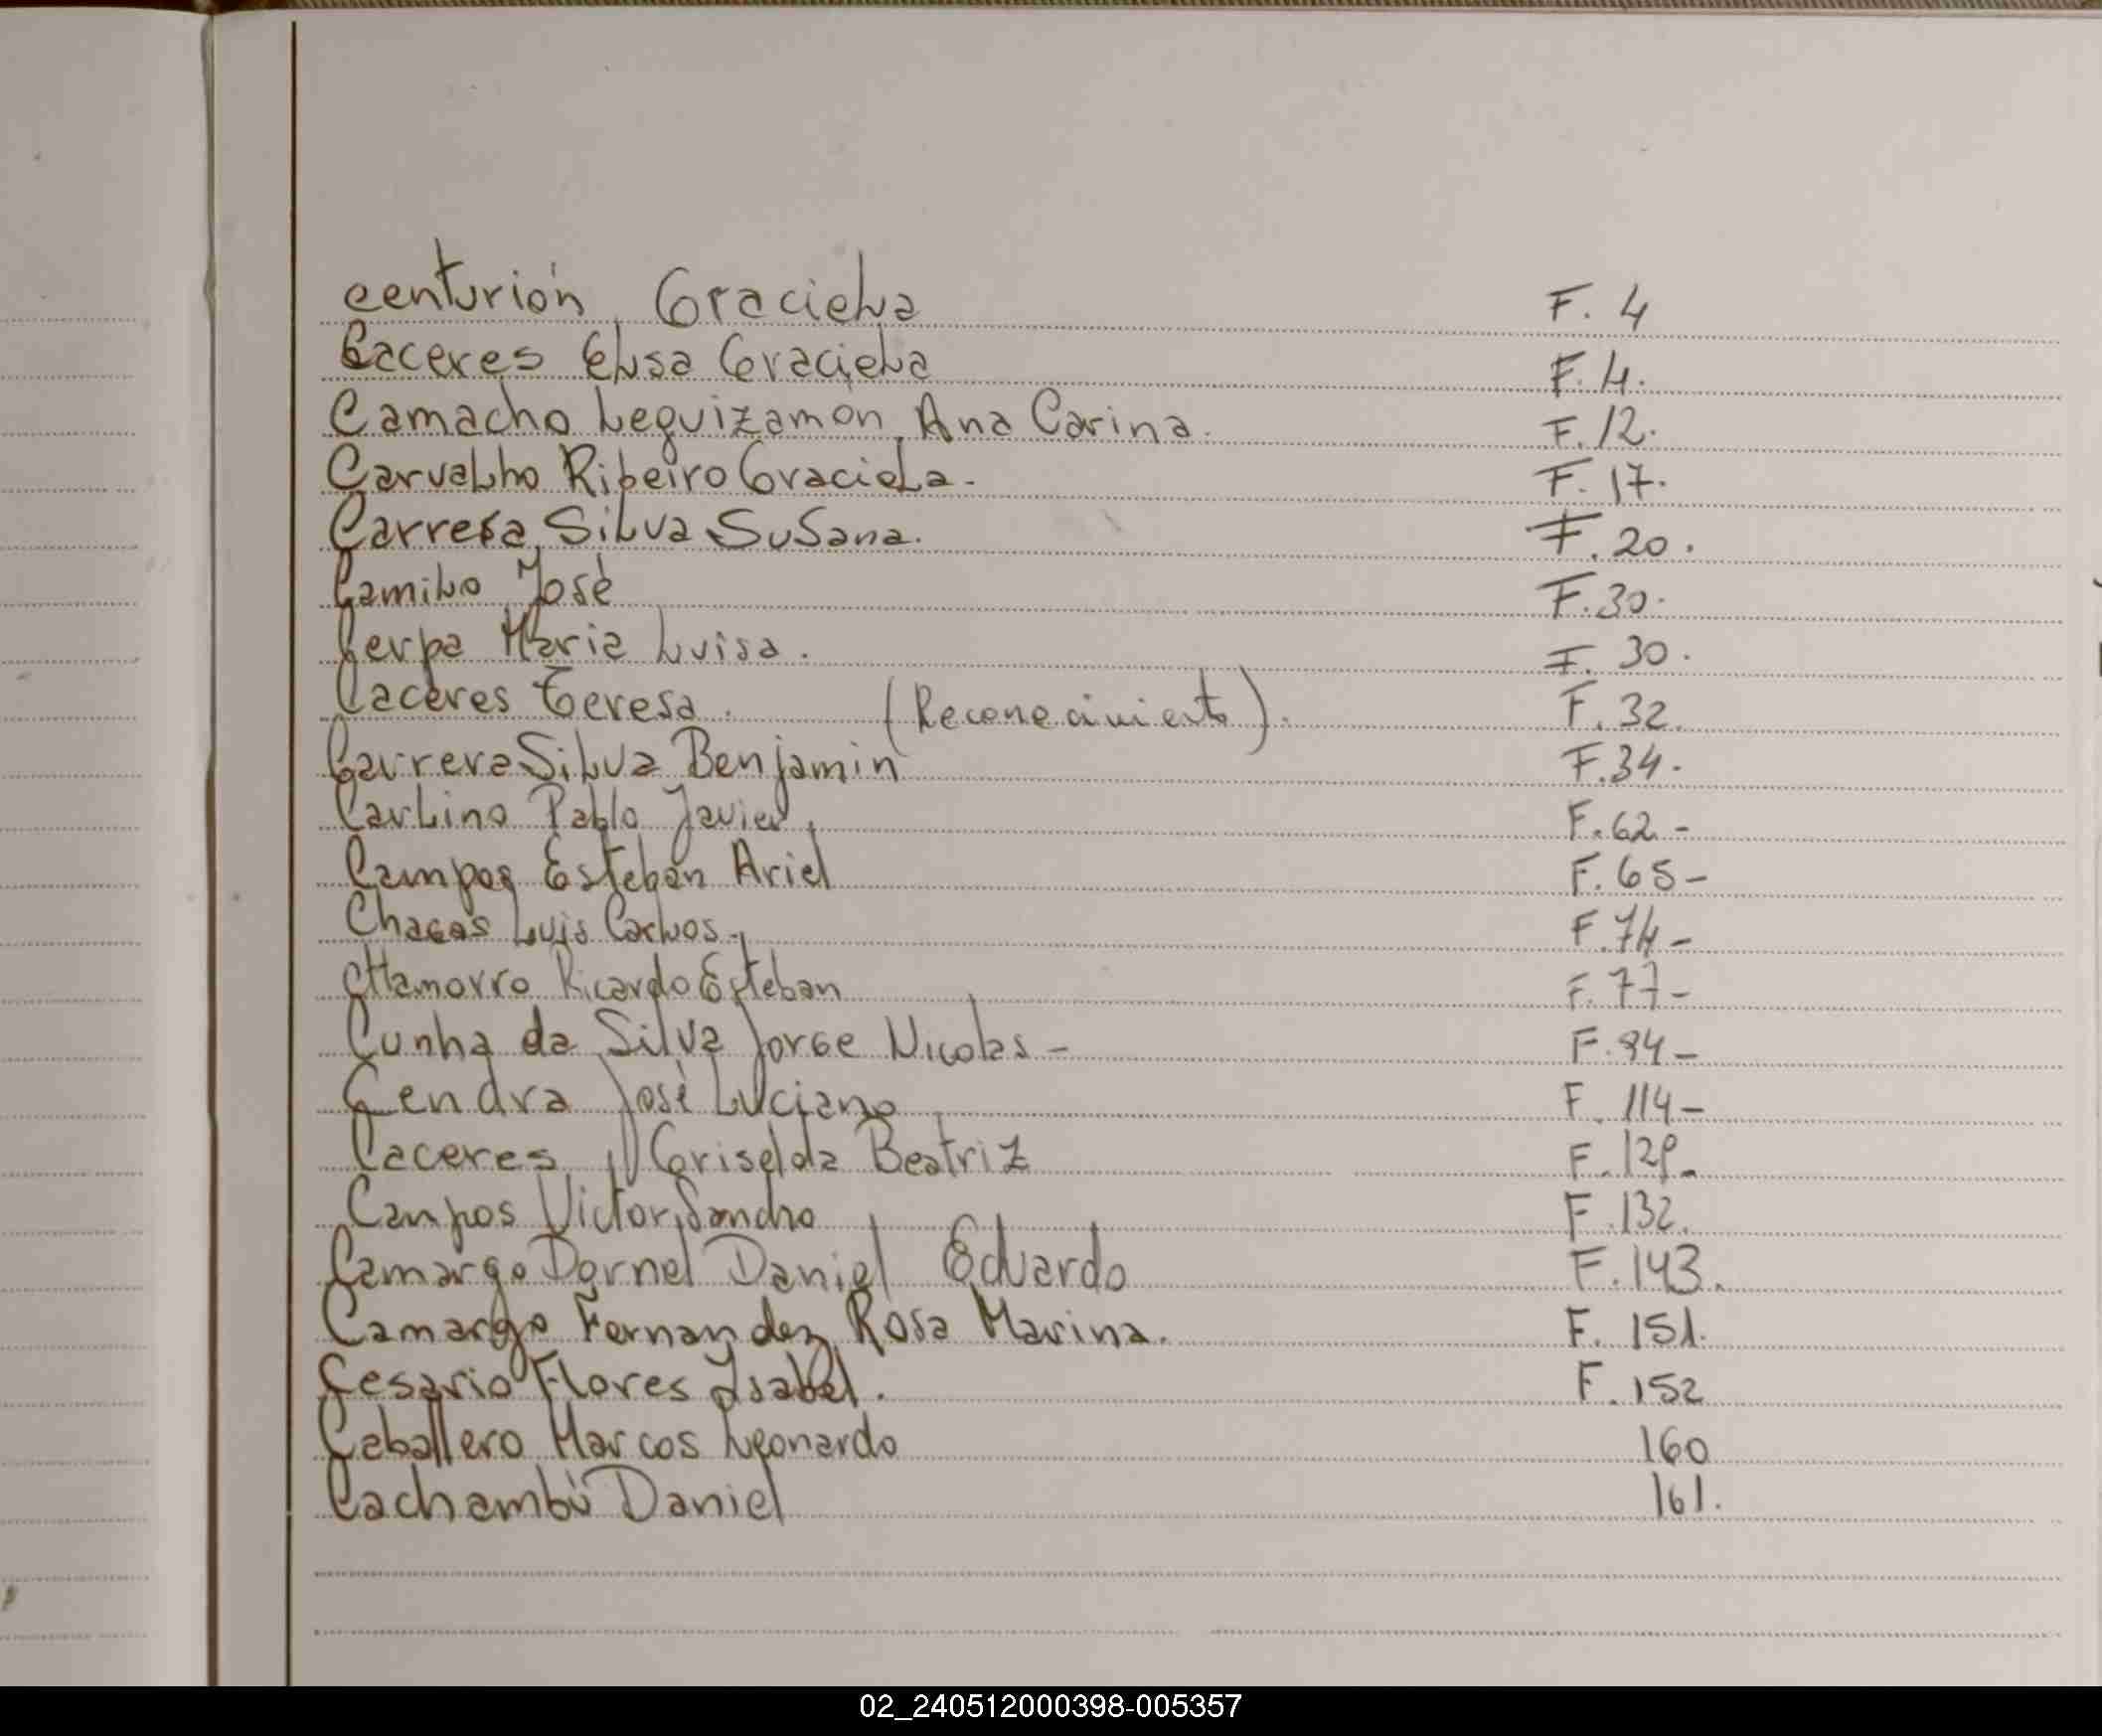 centurión, Graciela F. 4
Caceres Elisa Graciela F. 4.
Camacho Leguizamon, Ana Carina. F. 12.
Carvalho Ribeiro Graciela. F. 17.
Carrera, Silva Susana. F. 20.
Camilo José F. 30.
Cerpa Maria Luisa. F. 30.
Caceres Teresa. (Reconocimiento). F. 32.
Carrera Silva Benjamin F. 34.
Carlino Pablo Javier, F. 62-
Campos Esteban Ariel F. 65-
Chagas Luis Carlos. F. 74-
CHamorro Ricardo Esteban F. 77-
Cunha da Silva Jorge Nicolas - F. 94-
Cendra José Luciano F. 114-
Caceres, Griselda Beatriz F.
Campos Victor Sandro F. 132.
Camargo Dornel Daniel Eduardo F. 143.
Camargo Fernandez Rosa Marina. F. 151.
Cesario Flores Isabel. F. 152
Caballero Marcos Leonardo 160
Cachambú Daniel 161.
02_240512000398-005357